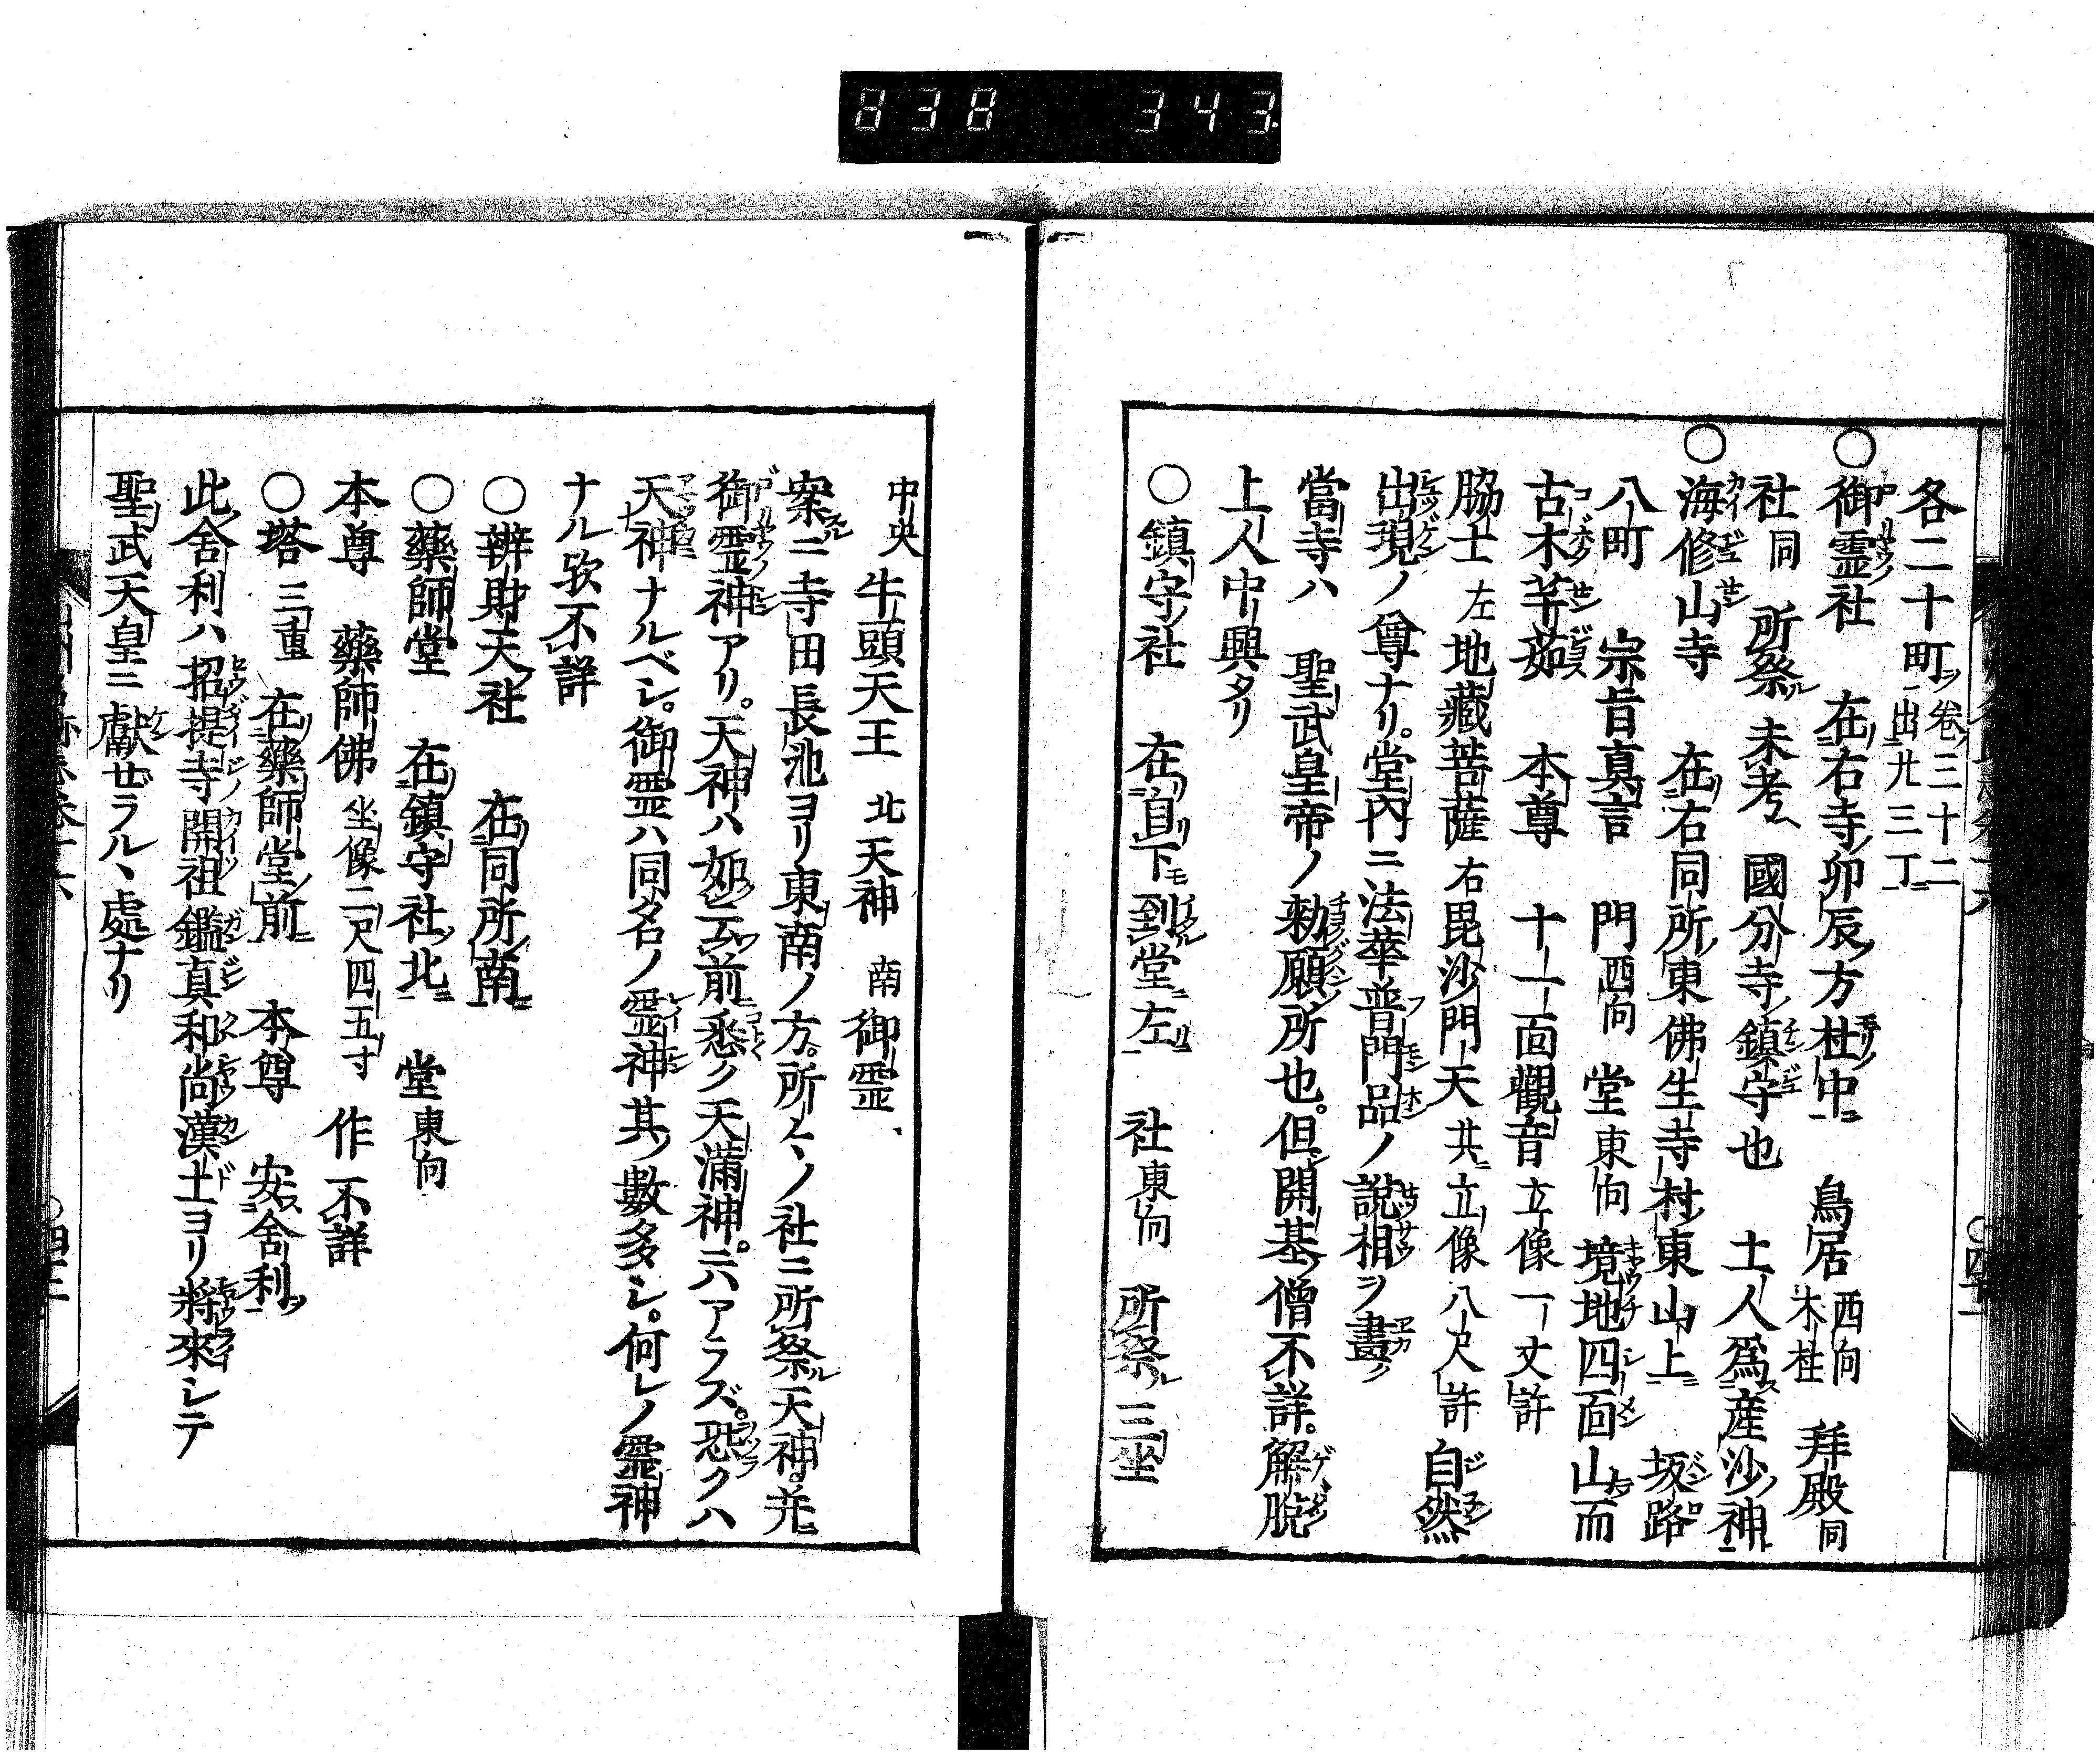 838 343
各二十町ヲ卷三十二出廾三丁
○御霊社 在右寺卯辰方杜中 鳥居西向木柱 拜殿同
社同 所祭ル未考 國分寺鎮守也 土人爲産沙神
○海修山寺 在右同所東佛生寺村東山上 坂路
八町 宗旨真言 門西向 堂東向 境地四面山而
古木苹茹 本尊 十一面觀音立像一丈許
脇士左地藏菩薩右毘沙門天共立像八尺許 自然
出現ノ尊ナリ。堂内ニ法華普門品ノ説相ヲ畫ク
當寺ハ 聖武皇帝ノ勅願所也。但開基僧不詳。解脱
上人中興タリ
○鎮守社 在自下到堂左 社東向 所祭ル三坐
中央牛頭天王 北天神 南御霊
案ニ寺田長池ヨリ東南ノ方。所々ノ社ニ所祭ル天神。并
御霊神アリ。天神ハ如云前悉ク天滿神。ニハアラズ。恐クハ
天神ナルベシ。御霊ハ同名ノ霊神其ノ數多シ。何レノ霊神
ナル欤不詳
○辨財天社 在同所南
○藥師堂 在鎮守社北 堂東向
本尊 藥師佛坐像二尺四五寸 作不詳
○塔三重 在藥師堂前 本尊 安舍利
此舍利ハ招提寺開祖鑑真和尚漢土ヨリ將來シテ
聖武天皇ニ獻せラルヽ處ナリ